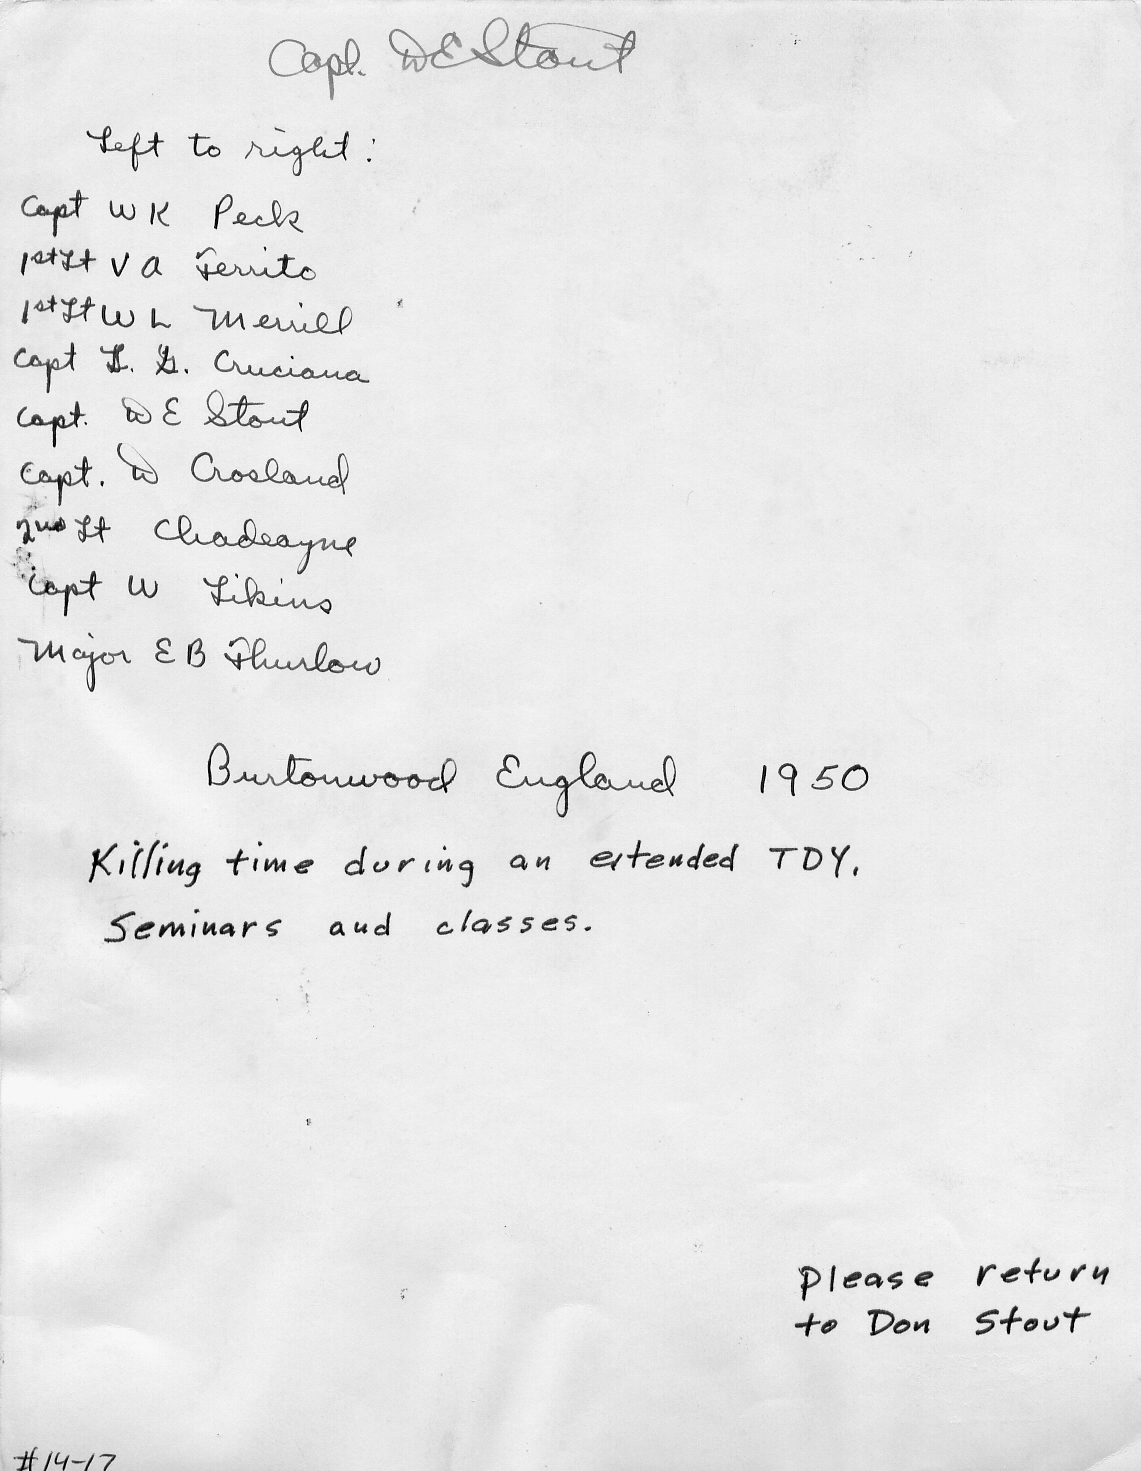 Capt. DE Stout
Left to right:
Capt W K Peck
1st Lt V A Ferrito
1st Lt W L Merrill
Capt G. Cruciana
Capt. D E Stout
Capt. D Crosland
2nd Lt Chadeayne
Capt W Likins
Major E B Thurlow
Burtonwood England 1950
Killing time during an extended TDY.
Seminars and classes.
Please return
to Don Stout
#14-17